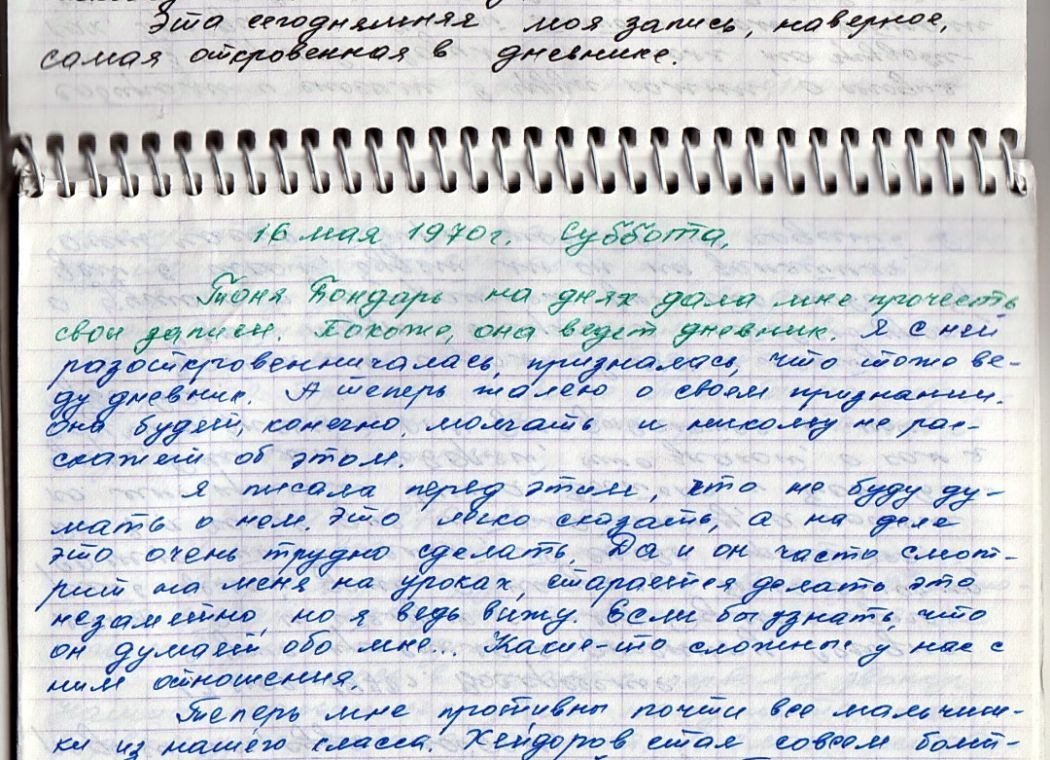 Эта сегодняшняя моя запись, наверное,
самая откровенная в дневнике.
16 мая 1970г. Суббота.
Тоня Бондарь на днях дала мне прочесть
свои записи. Похоже, она ведет дневник. Я с ней
разоткровенничалась, призналась, что тоже ве-
ду дневник. А теперь жалею о своем признании.
Она будет, конечно, молчать и никому не рас-
скажет об этом.
Я писала перед этим, что не буду ду-
мать о нем. Это легко сказать, а на деле
это очень трудно сделать. Да и он часто смот-
рит на меня на уроках, старается делать это
незаметно, но я ведь вижу. Если бы узнать, что
он думает обо мне... Какие-то сложные у нас с
ним отношения.
Теперь мне противны почти все мальчиш-
ки из нашего класса. Хейдоров стал совсем болт-